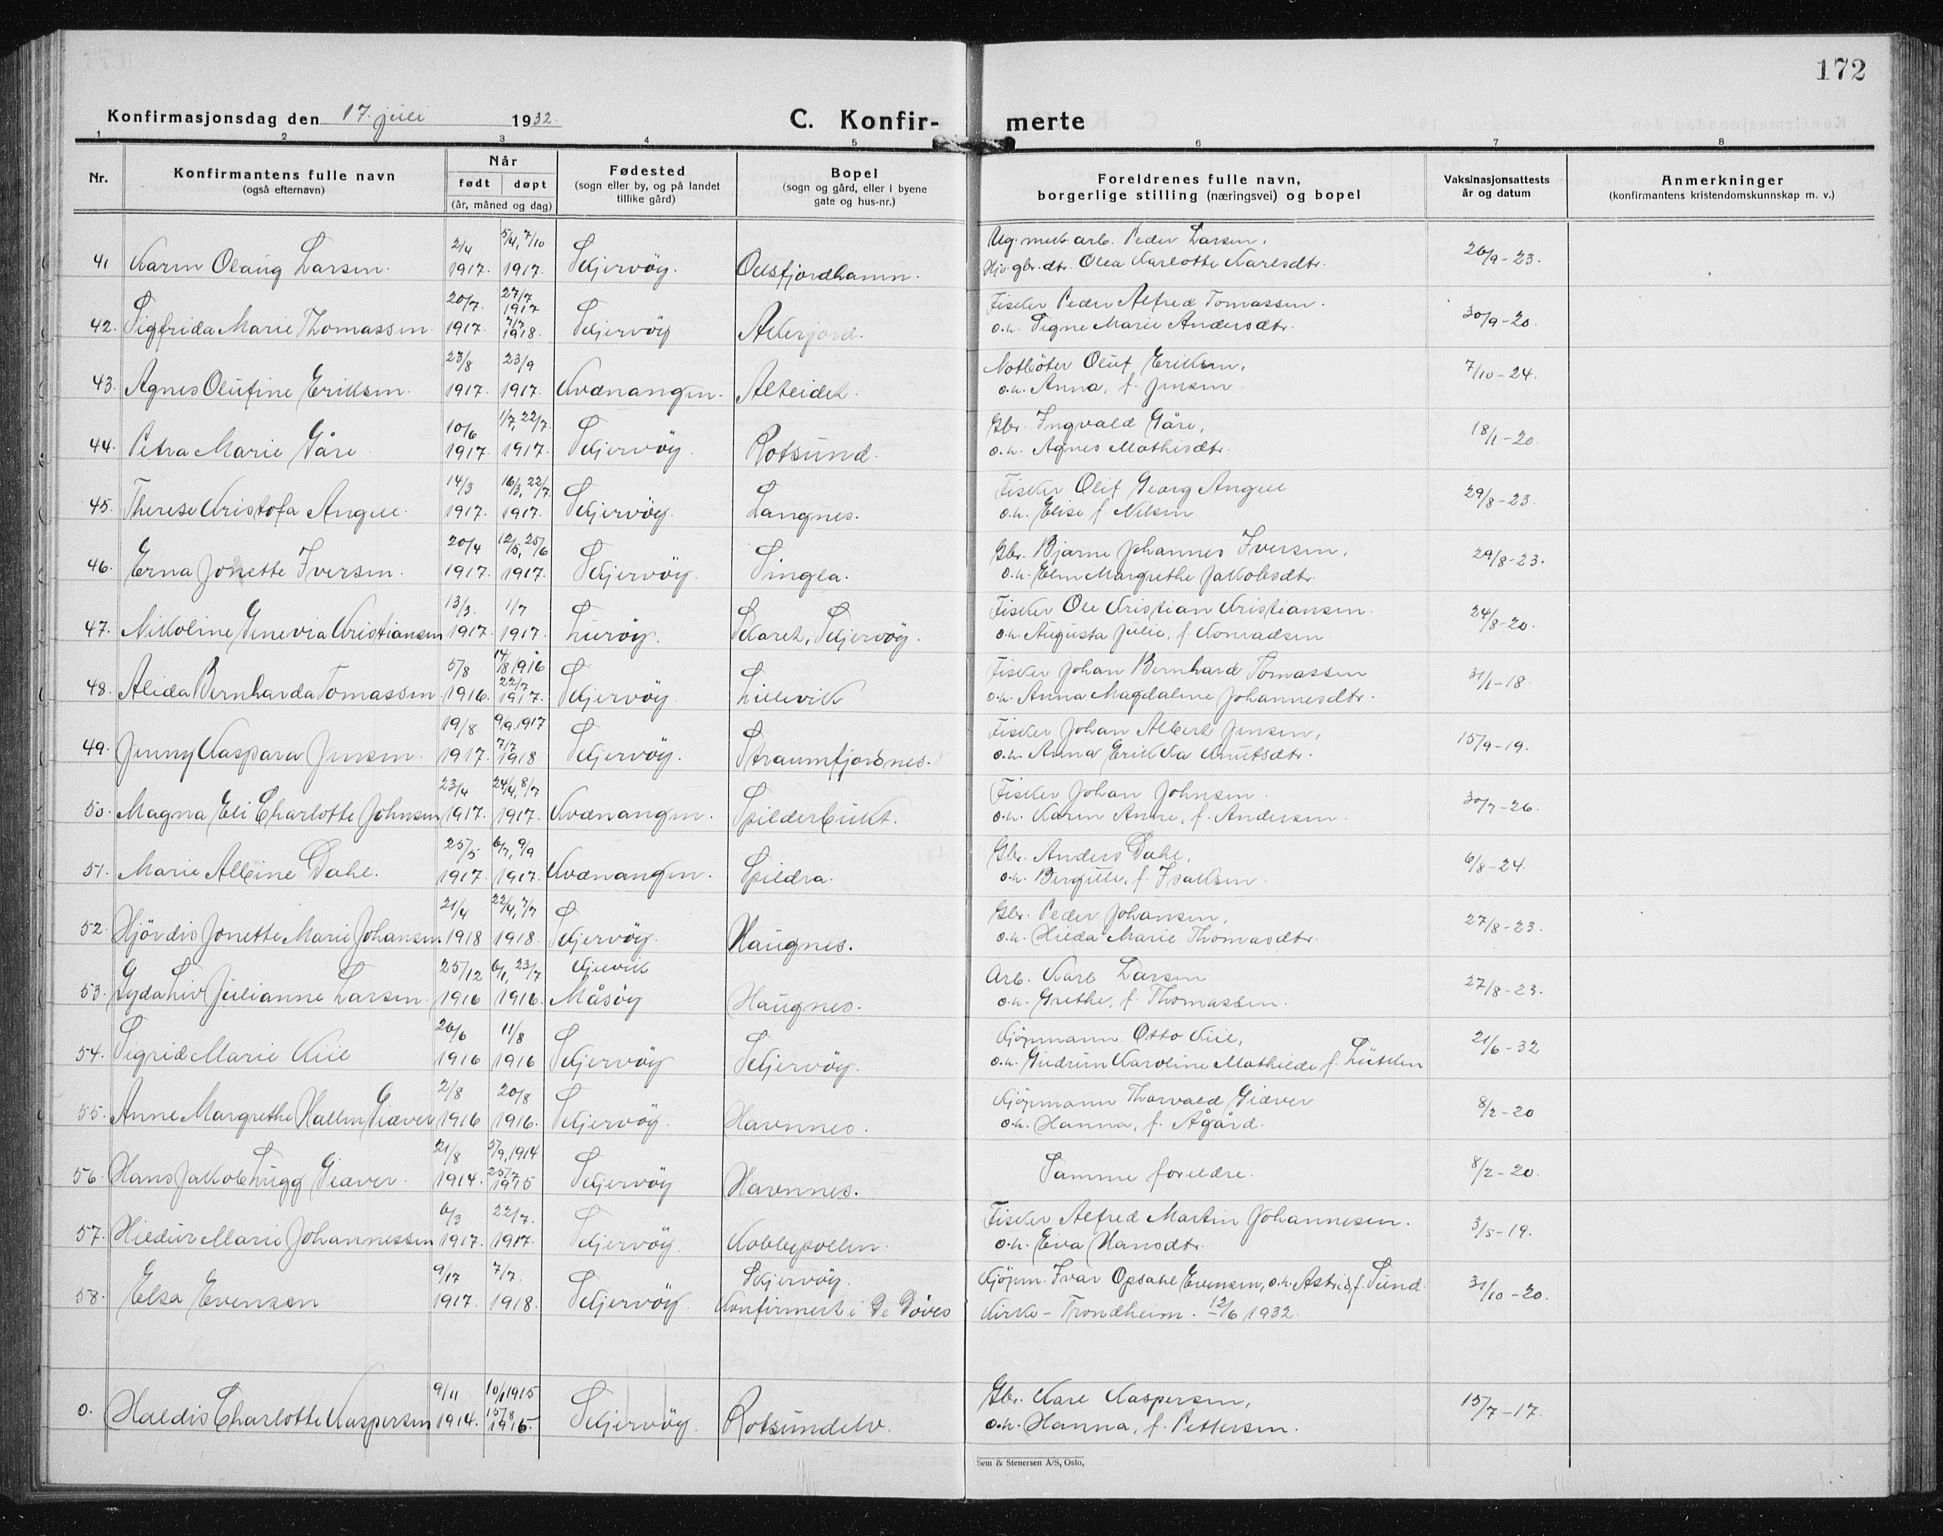 172
Konfirmasjonsdag den 17. juli 1932.
C. Konfirmerte
1 2 3 4 5 6 7 8
Nr.
Konfirmantens fulle navn
(også efternavn)
Når
født døpt
(år, måned og dag)
Fødested
(sogn eller by, og på landet
tillike gård)
Bopel
(sogn og gård, eller i byene
gate og hus-nr.)
Foreldrenes fulle navn,
borgerlige stilling (næringsvei) og bopel
Vaksinasjonsattests
år og datum
Anmerkninger
(konfirmantens kristendomskunnskap m. v.)
2/4 5/4, 7/10 Ug. arb. Peder Larsen,
41 Karin Olaug Larsen. 1917. 1917. Skjervöy. Olaf Karlotte Karlsdtr. 26/9-23.
20/7 27/7 1917 Fisker Peder Alfred Tomassen.
42. Sigfrida Marie Thomassen. 1917. 7/7 1918. Skjervöy Akkerfjord. o.h. Signe Marie Andersdtr. 30/9-20.
23/8 23/9 Notböter Oluf Eriksen,
43. Agnes Olufine Eriksen. 1917. 1917. Kvænangen. Alteidet. o.h. Anna, f. Jensen 7/10-24.
10/6 1/7, 22/7 Gbr. Ingvald Gåre,
44. Petra Marie Gåre 1917. 1917. Skjervöy. Rotsund. o.h. Agnes Mathisdtr. 18/1-20.
14/3 16/3, 22/7 Fisker Olif Georg Angell
45. Therese Kristofa Angell. 1917. 1917. Skjervöy. Langnes. o.h. Elise f Nilsen 29/8-23.
20/4 12/5, 25/6 Gbr. Bjarne Johannes Iversen,
46. Erna Jonette Iversen. 1917. 1917. Skjervöy. Singla. o.h. Elen Margrethe Jakobsdtr. 29/8-23.
13/3. 1/7 Fisker Ole Kristian Kristiansen.
47. Nikoline Genevia Kristiansen 1917. 1917. Luröy. Skaret, Skjervöy. o.h. Augusta Julie, f. Konradsen. 24/8-20.
5/8 14/8 1916 Fisker Johan Bernhard Tomassen
48. Alida Bernharda Tomassen 1916. 22/7 1917. Skjervöy. Lillevik o.h. Anna Magdalene Johannesdtr. 31/1-18.
19/8 9/9. 1917 Fisker Johan Albert Jensen,
49. Jenny Kaspara Jensen. 1917. 7/7 1918 Skjervöy. Straumfjordnes. o.h. Anna Erikka Knutsdtr. 15/9-19.
23/4 24/4, 8/7 Fisker Johan Johnsen.
50. Magna Eli Charlotte Johnsen 1917. 1917. Kvænangen. Spilderbukt. o.h. Karen Anne, f. Andersen. 30/7-26.
25/5 6/7, 9/9 Gbr. Anders Dahl,
51. Marie Albine Dahl. 1917. 1917. Kvænangen. Spildra. o.h. Bergitte, f. Isaksen. 6/8-24.
21/4 22/4, 7/7 Gbr. Peder Johansen,
52. Hjördis Jonette Marie Johansen. 1918 1918. Skjervöy. Haugnes. o.h. Hilda Marie Thomasdtr. 27/8-23.
25/12 6/1, 23/7 Arb. Karl Larsen
53. Gyda Liv Julianne Larsen. 1916 1916. Måsöy Haugnes. o.h. Grethe, f. Thomassen. 27/8-23.
26/6 11/8 Kjöpmann Otto Kiil,
54. Sigrid Marie Kiil 1916 1916 Skjervöy Skjervöy. o.h. Gudrun Karoline Mathilde f. Lütken 21/6-32
2/8 20/8 Kjöpmann Thorvald Giæver
55. Anne Margrethe Hallen Giæver 1916 1916. Skjervöy. Havnnes. o.h. Hanna, f. Ågård. 8/2-20
21/8 5/9, 1914
56. Hans Jakob Lugg Giæver. 1914. 25/7 1915 Skjervöy Havnnes. Samme foreldre. 8/2-20.
6/3 22/7. Fisker Alfred Martin Johannesen.
57. Hildur Marie Johannessen 1917. 1917. Skjervöy. Kobbepollen. o.h. Eva Hansdtr. 3/5-19.
9/17 7/7. Skjervöy. Kjöpm. Ivar Opsahl Evensen, o.h. Astrid, f. Sund.
58. Elsa Evensen 1917. 1918. Skjervöy. Konfirmert i De Döves Kirke - Trondheim. 12/6 1932. 31/10-20.
9/11 10/1 1915 Gbr. Kare Kaspersen,
0. Haldis Charlotte Kaspersen 1914. 15/8 1915. Skjervöy. Rotsundelv. o.h. Hanna, f. Pettersen. 15/7-17.
Sem & Stenersen A/S, Oslo.